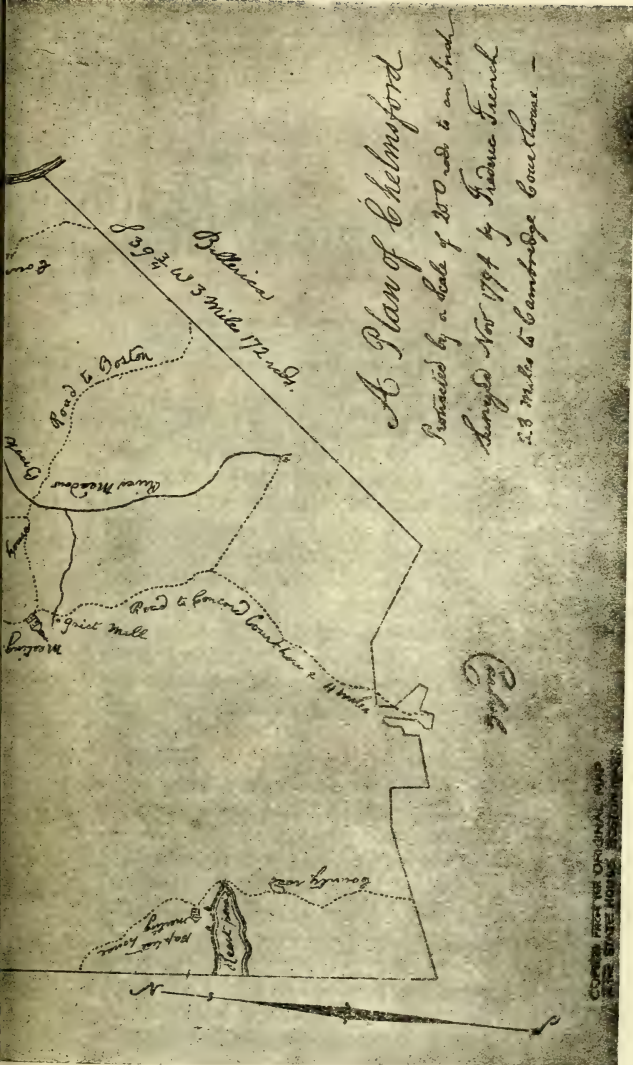 A Plan of Chelmsford
Protracted by a Scale of 200 rods to an Inch
Surveyed Nov 1794 by Frederic French
28 miles to Cambridge Courthouse —
Billerica
S 39 3/4 W 3 Miles 172 rods.
Road to Boston
Brook
River Meadow
Road to Concord Courthouse 11 miles
Grist Mill
Meeting
Carlisle
County road
Baptist
meeting
house
Heart pond
N
S
COPIED FROM THE ORIGINAL MAP
STATE HOUSE